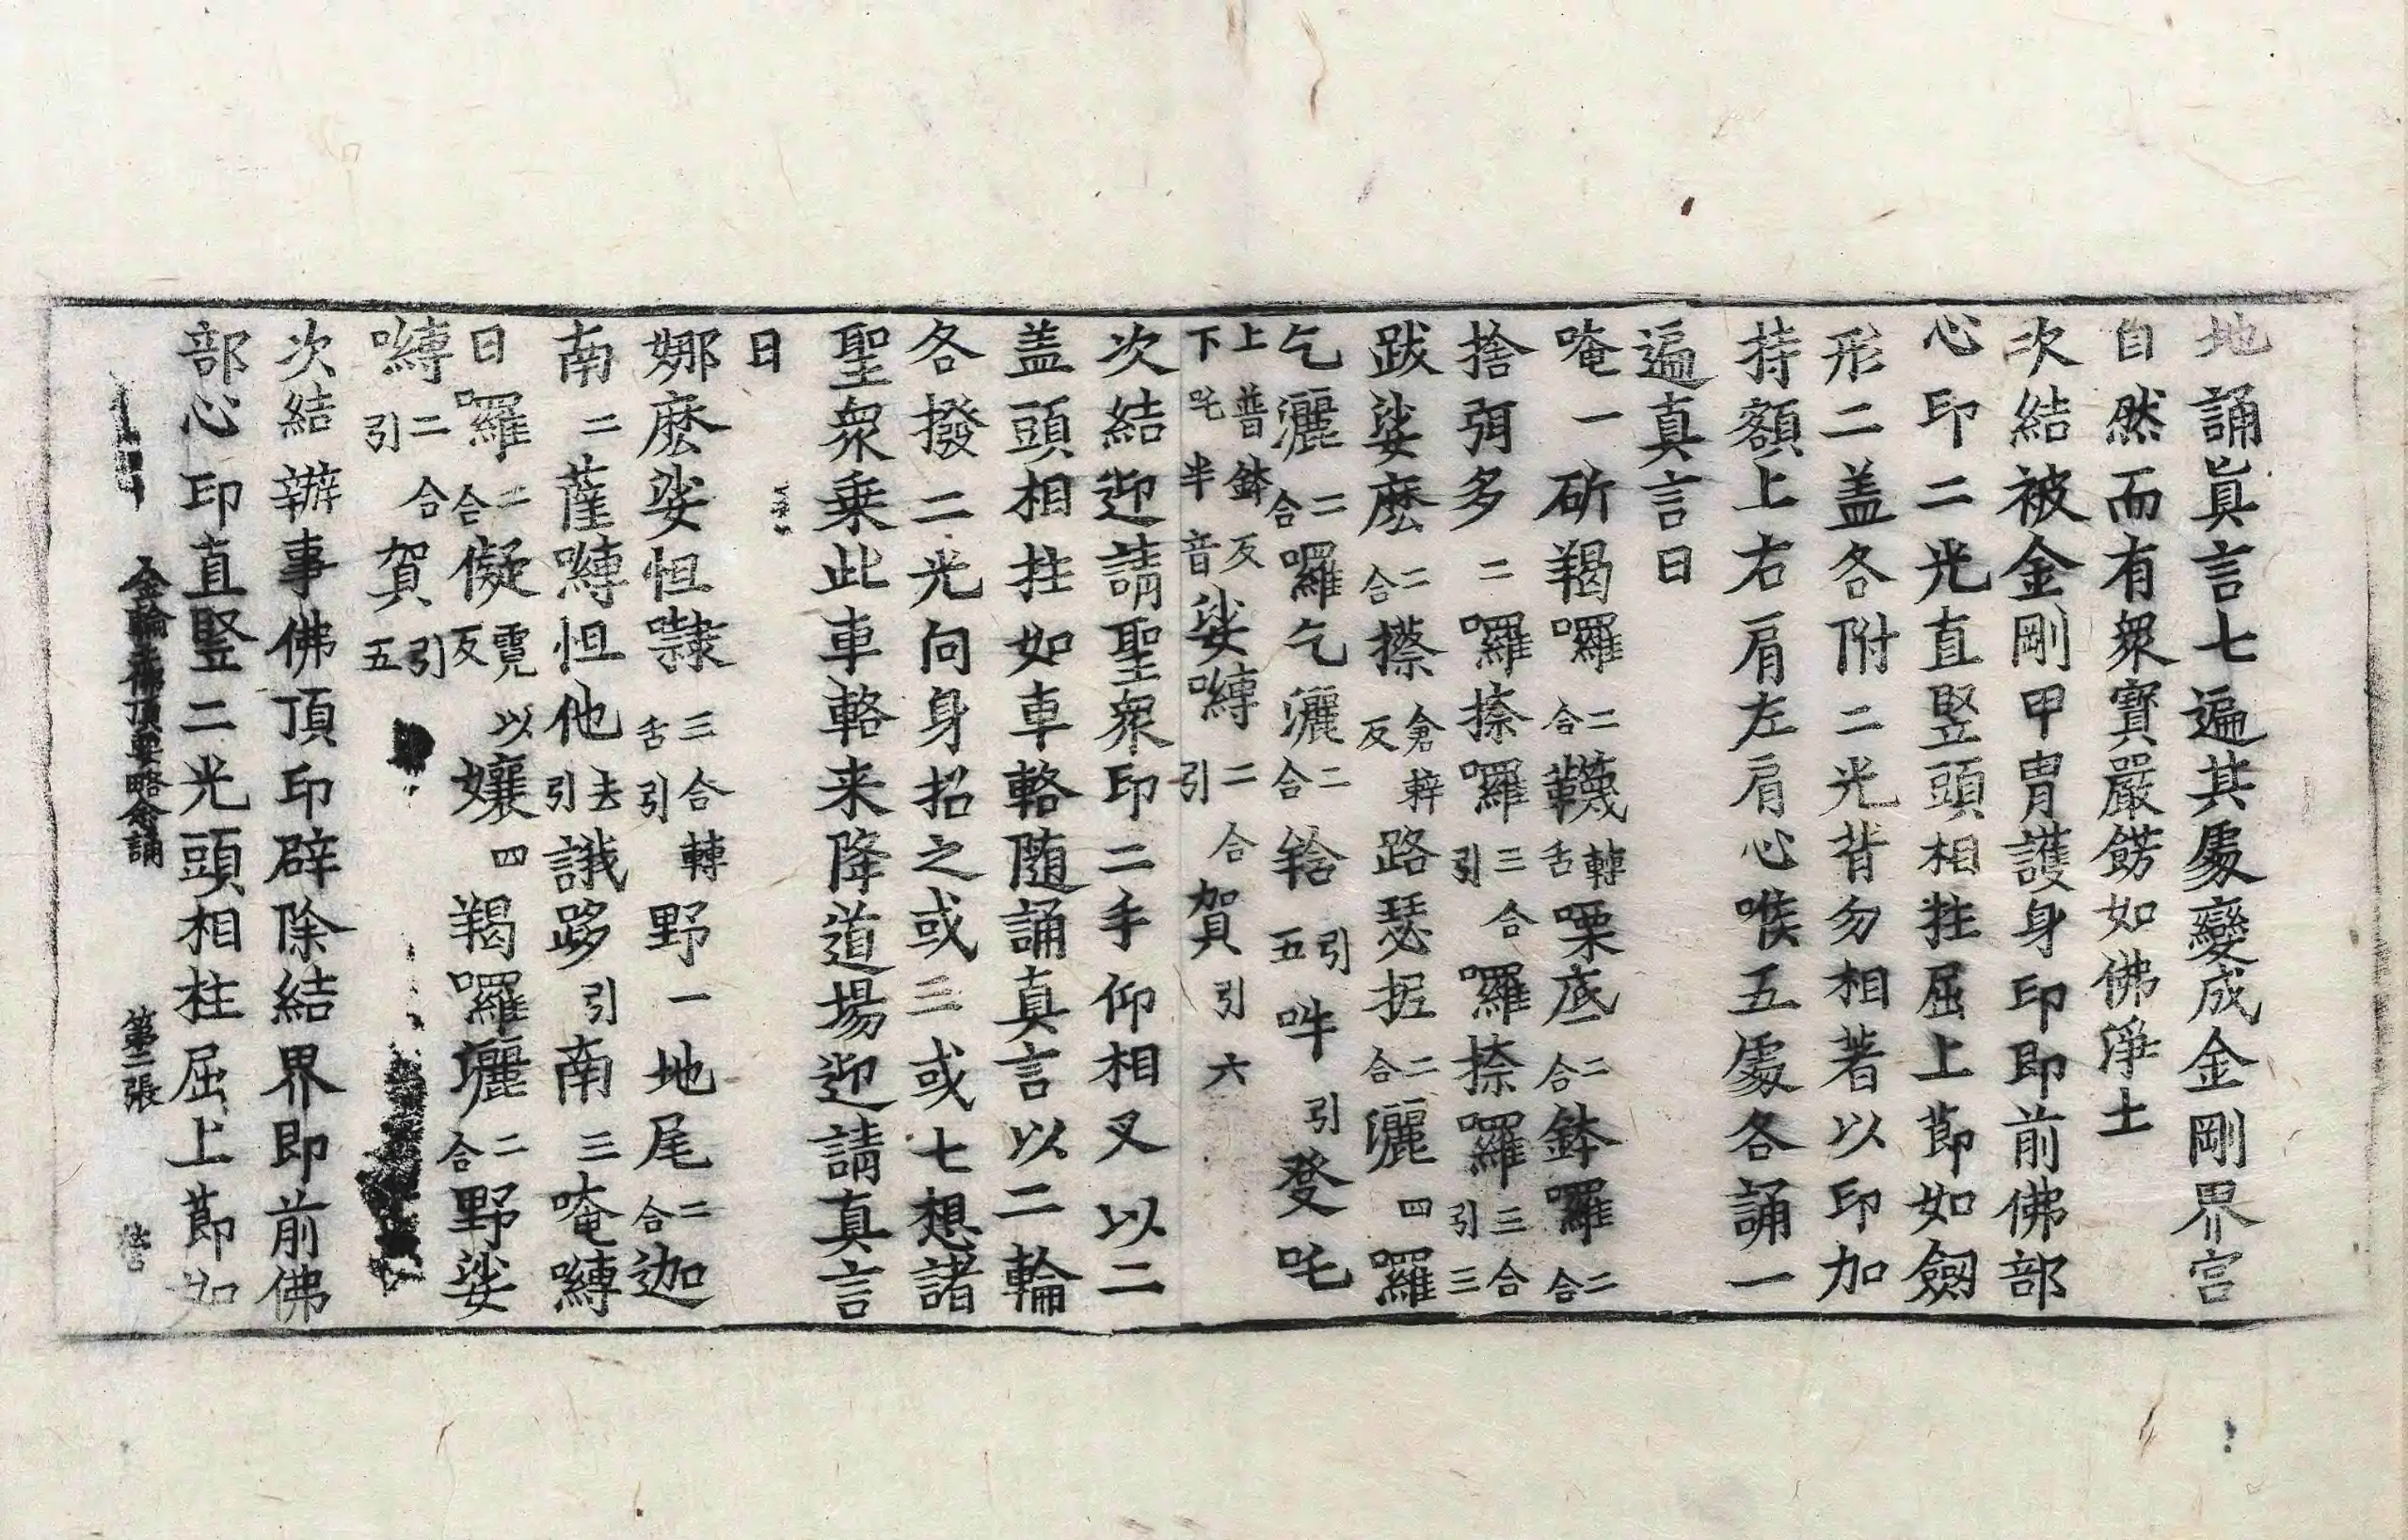 地誦眞言七遍其處變成金剛界宮
自然而有衆寶嚴餝如佛淨土
次結被金剛甲冑護身印即前佛部
心印二光直竪頭相拄屈上莭如劒
形二盖各附二光背勿相著以印加
持額上右肩左肩心喉五處各誦一
遍真言曰
唵一斫羯囉二合韈轉舌㗚底二合鉢囉二合
捨弭多二囉捺囉三合引囉捺囉三合引三
跋娑麽二合攃倉粹反路瑟抳二合灑四囉
乞灑二合囉乞灑二合𤚥引五吽引癹吒
上普鉢反下吒半音娑嚩二合引賀引六
次結迎請聖衆印二手仰相叉以二
盖頭相拄如車輅随誦真言以二輪
各撥二光向身招之或三或七想諸
聖衆乗此車輅来降道場迎請真言
曰
娜麽娑怛㘑三合轉舌引野一地尾二合迦
南二薩嚩怛他去引誐跢引南三唵嚩
日囉二合儗霓以反孃四羯囉灑二合野娑
嚩二合引賀引五
次結辦事佛頂印辟除結界即前佛
部心印直竪二光頭相柱屈上莭如
金輪佛頂要略念誦　第二張